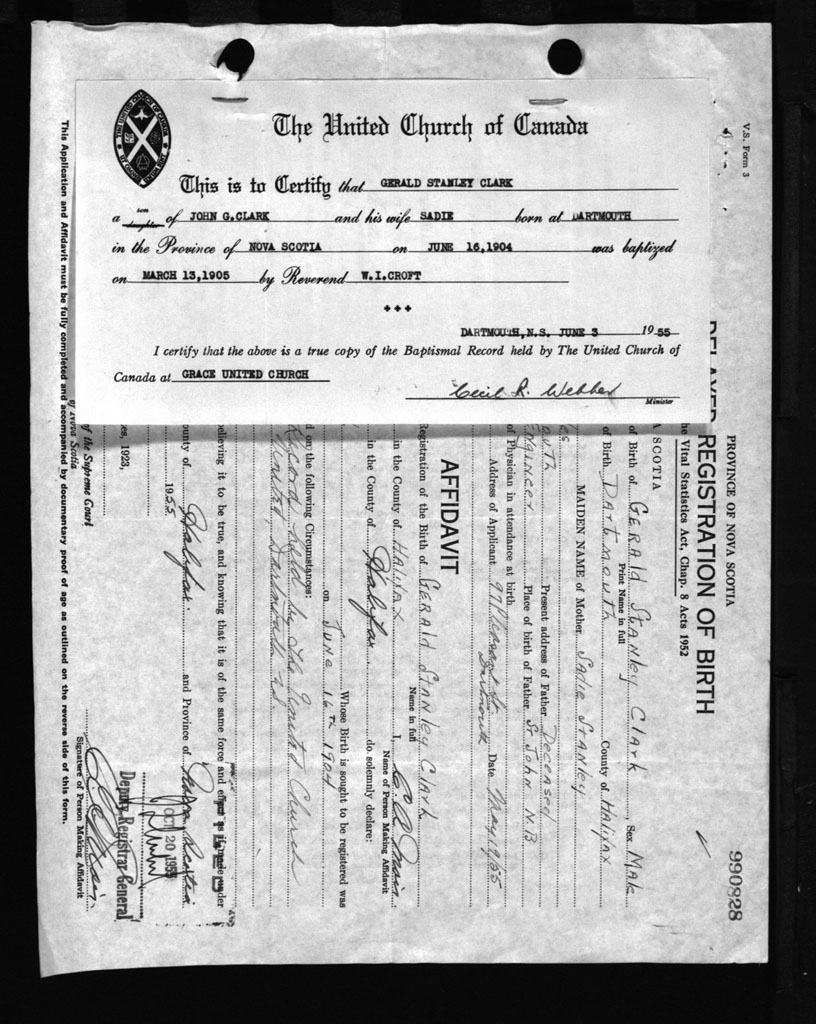 The United Church of Canada
This is to Certify that GERALD STANLEY CLARK
a son daughter of JOHN G.CLARK and his wife SADIE born at DARTMOUTH
in the Province of NOVA SCOTIA on JUNE 16,1904 was baptized
on MARCH 13,1905 by Reverend W.I.CROFT
+++
DARTMOUTH,N.S. JUNE 3 1955
I certify that the above is a true copy of the Baptismal Record held by The United Church of
Canada at GRACE UNITED CHURCH
Cecil R. Webber
Minister
V.S. Form 3
990828
PROVINCE OF NOVA SCOTIA
DELAYED REGISTRATION OF BIRTH
he Vital Statistics Act, Chap. 8 Acts 1952
A SCOTIA
of Birth of Gerald Stanley Clark, Sex Male
Print Name in full
of Birth Dartmouth County of Halifax
MAIDEN NAME of Mother Sadie Stanley
Present address of Father Deceased
Engineer Place of birth of Father St John N.B
of Physician in attendance at birth
Address of Applicant 97 Pleasant St Dartmouth Date May 19/55
AFFIDAVIT
Registration of the Birth of Gerald Stanley Clark
Name in full
in the County of Halifax I,
Name of Person Making Affidavit
in the County of Halifax do solemnly declare:
Whose Birth is sought to be registered was
on June 16th 1904
d on the following Circumstances:
Record held by The United Church
United, Dartmouth N.S.
believing it to be true, and knowing that it is of the same force and effect as if made under
ounty of Halifax and Province of Nova Scotia
1955
es, 1923,
of the Supreme Court
of Nova Scotia
Signature of Person Making Affidavit
Deputy Registrar General
OCT 20 1955
This Application and Affidavit must be fully completed and accompanied by documentary proof of age as outlined on the reverse side of this form.